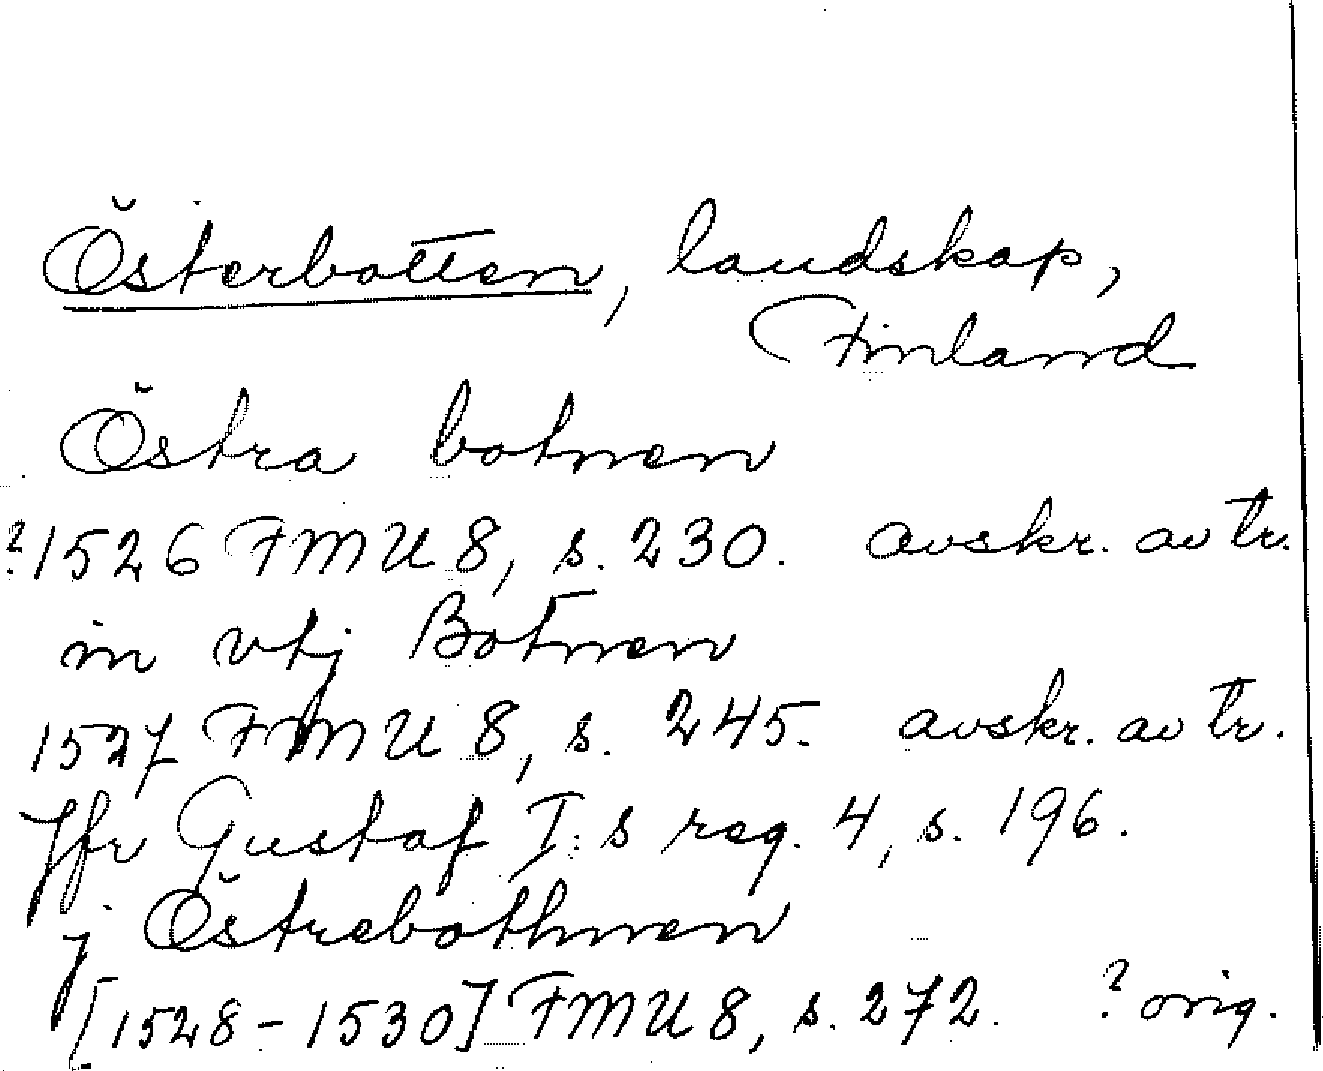 Österbotten, landskap,
Finland
Östra botnen
? 1526 FMU 8, s. 230. avskr. av tr.
in vtj Botnen
1527 FMU 8, s. 245. avskr. av tr.
Jfr Gustaf I:s reg. 4, s. 196.
j Östrebothnen
[1528-1530] FMU 8, s. 272. ? orig.